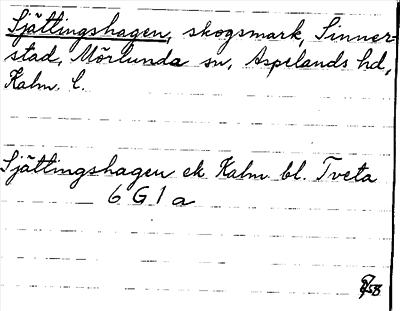 Sjättingshagen, skogsmark, Sinner-
stad, Mörlunda sn, Aspelands hd,
Kalm. l.
Sjättingshagen ek Kalm bl. Tveta
6 G 1 a